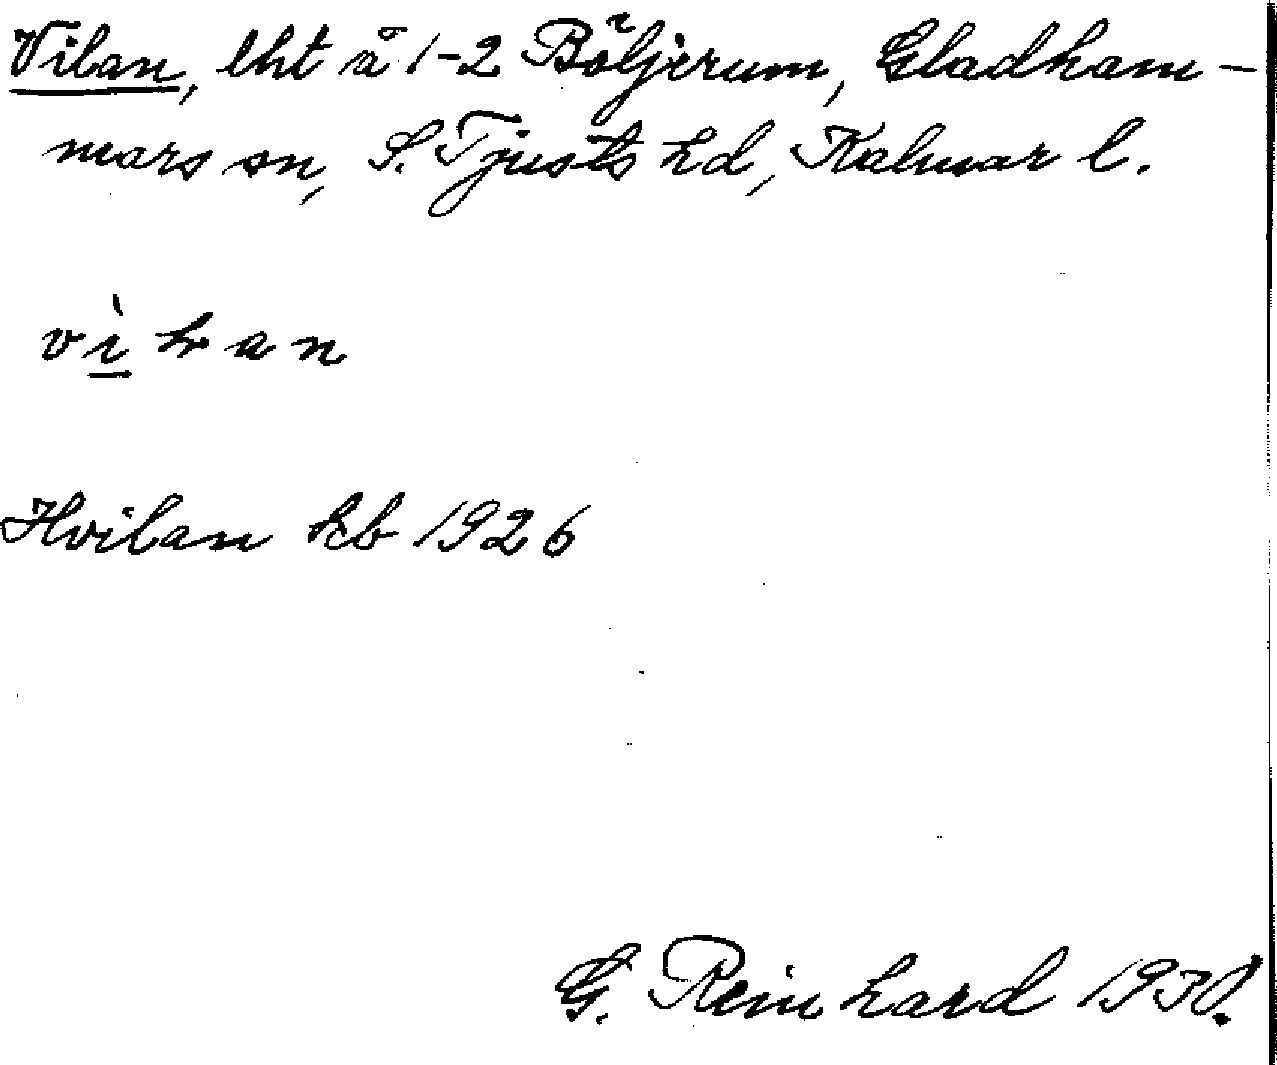 Vilan, lht å 1-2 Böljerum, Gladham-
mars sn, S. Tjusts hd, Kalmar l.
Hvilan kb 1926
G. Reinhard 1930.